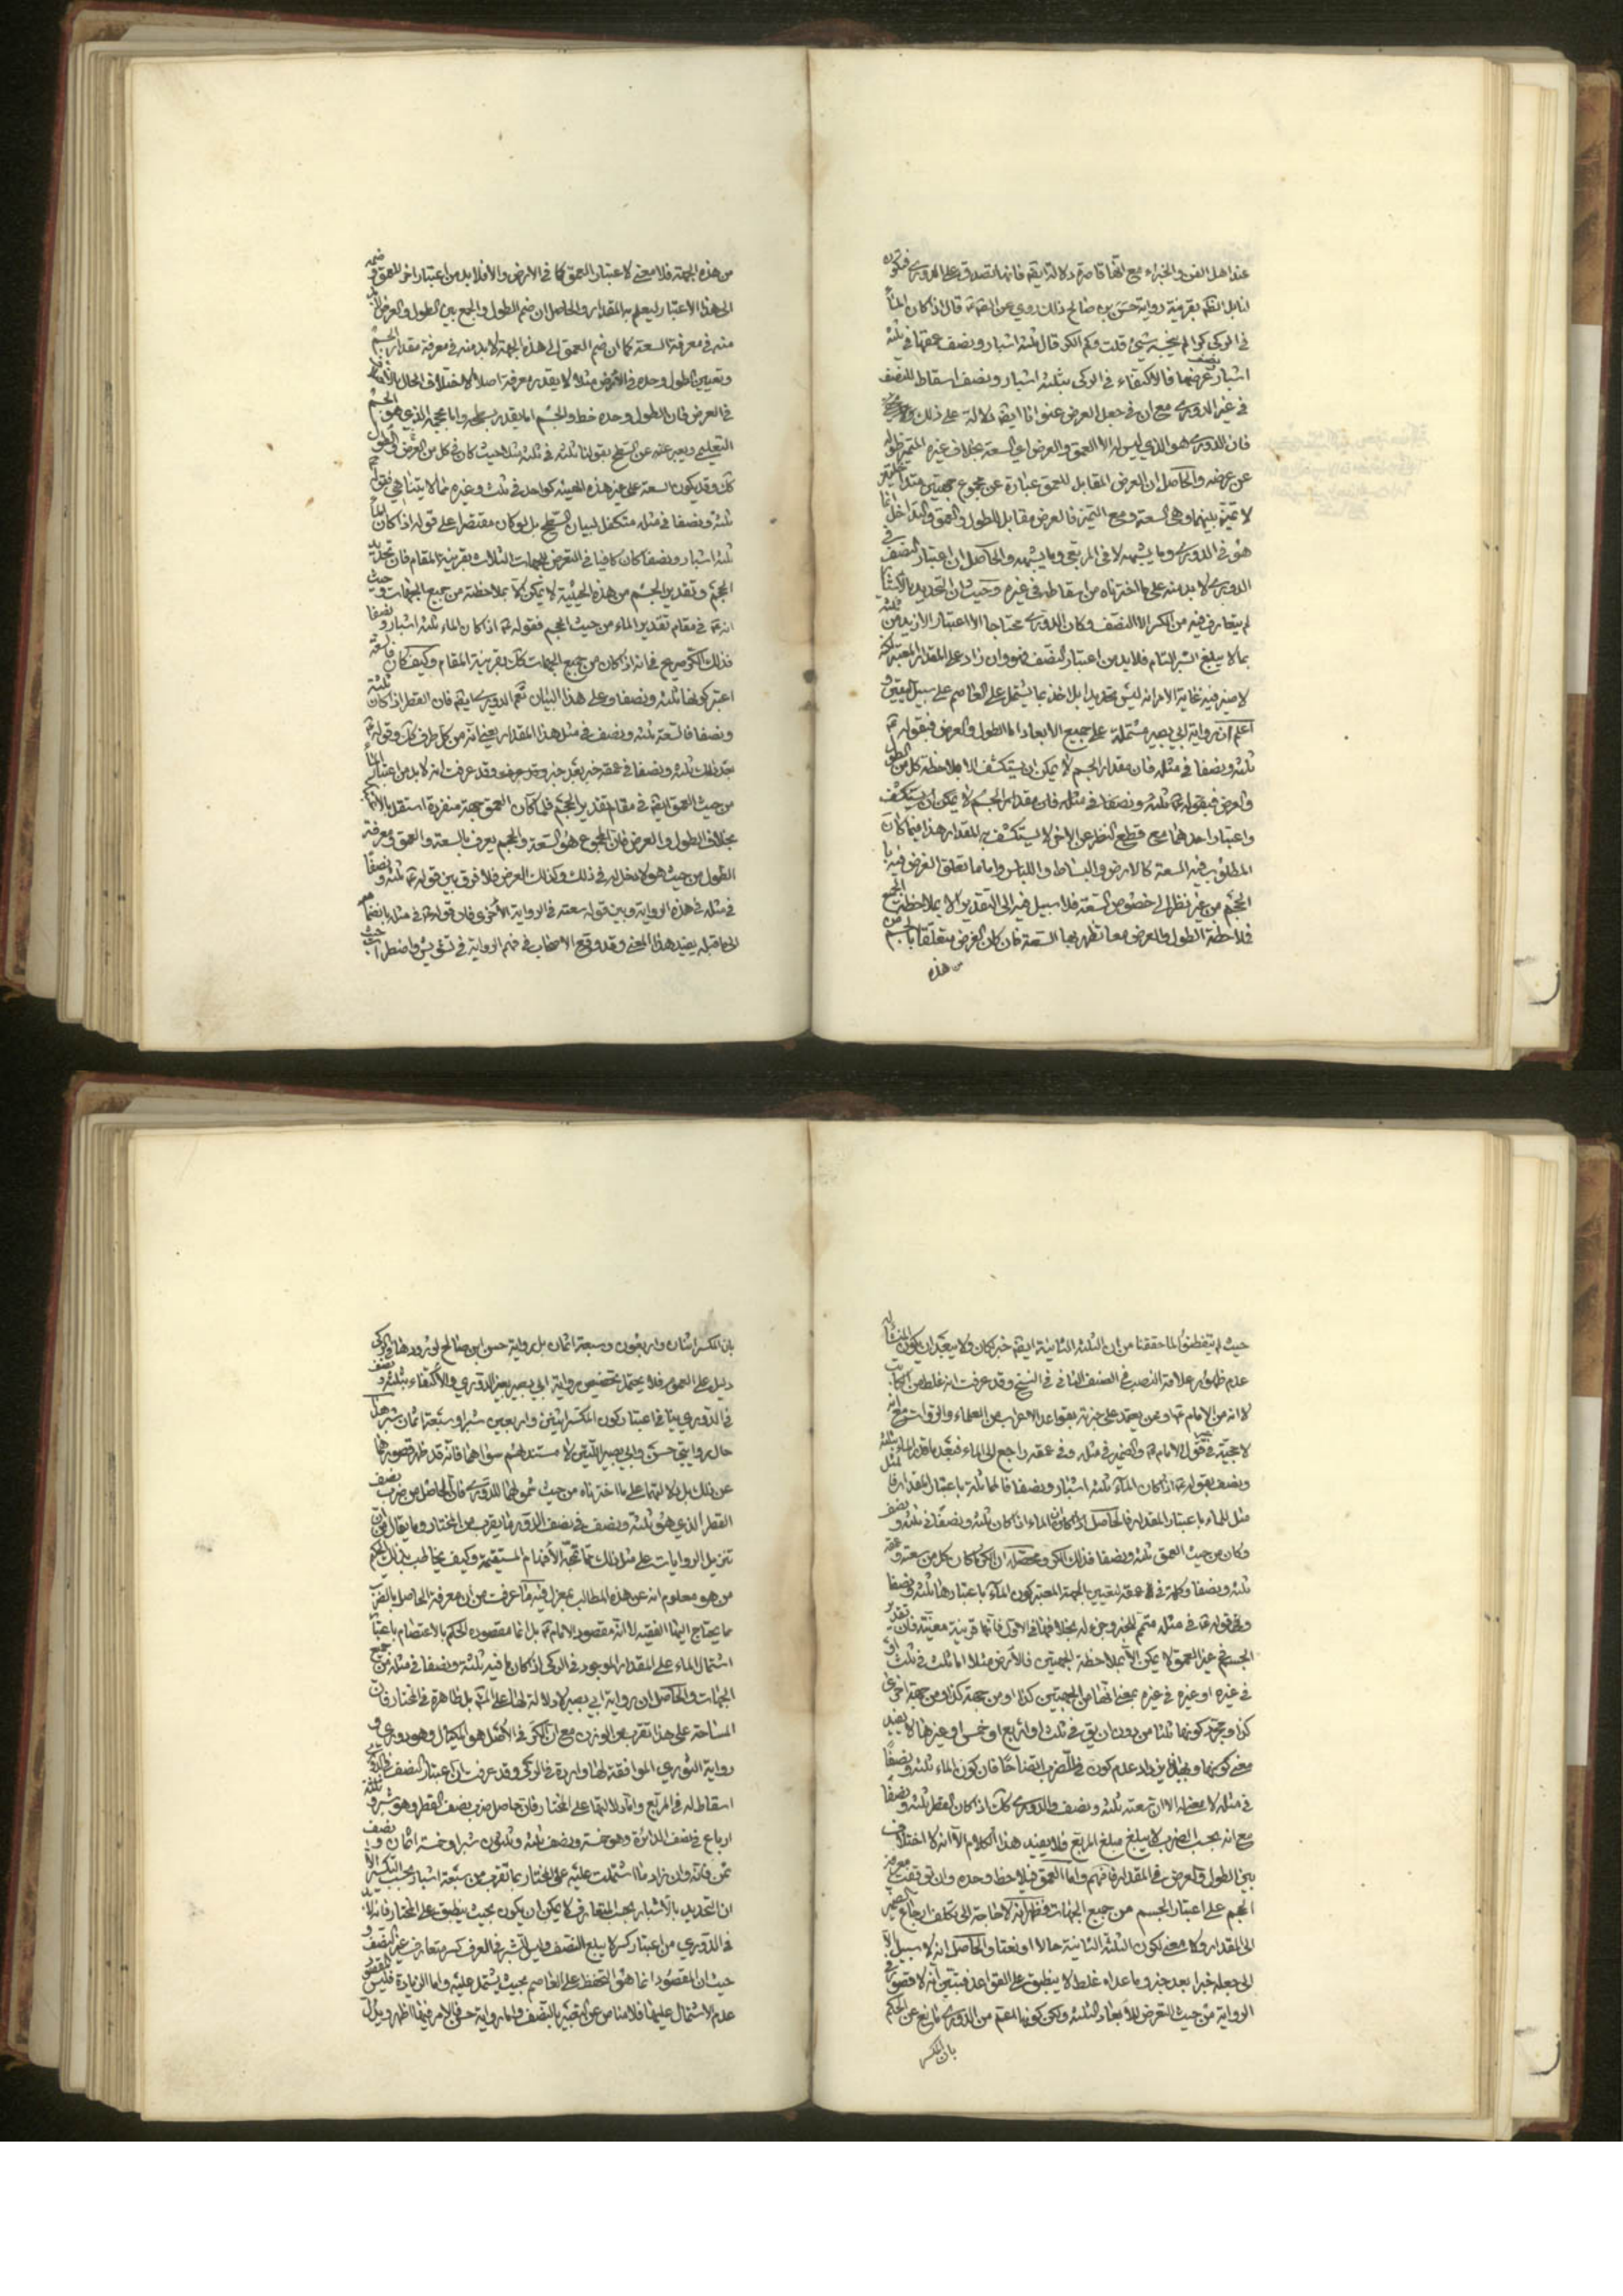 عند اهل الفن والخبراء مع انها قاصرة دلالة ايضا فانها تصدق على الدورى
لنا بل الظ بقرينة رواية حسن بن صالح ذلك روي عن الصّ قال اذا كان الماء
في الركي كرا لم ينجسه شيئ قلت وكم الكر قال ثلثة اشبار ونصف عمقها في ثلثة
اشبار ونصف عرضها فالاكتفاء في الركى بثلثة اشبار ونصف اسقاط للنصف
في غير الدورى مع ان في جعل العرض عنوانا ايضا دلالة على ذلك
فان الدورى هو الذي ليس له الا العمق والعرض اي السعة بخلاف غيره المتميز طوله
عن عرضه والحاصل ان العرض المقابل للعمق عبارة عن مجموع جهتين
لا تميز بينهما وهى السعة ومع التميز فالعرض مقابل للطول والعمق والتداخل انما
هو في الدورى وما يشبهه لا في المربع وما يشبهه والحاصل ان اعتبار النصف في
الدورى لا بد منه على ما اخترناه من اسقاطه في غيره وحيث ان التحديد بالاشبار
لم يتعارف فيه من الكسر الا النصف وكان الدورى محتاجا الى اعتبار الازيد من ثلثة
بما لا يبلغ الشبر التام فلا بد من اعتبار النصف فهو وان زاد على المقدار المعتبر لكنه
لا ضير فيه غاية الامر انه ليس تحديدا بل اخذ بما يشتمل على العاصم على سبيل اليقين و
اعلم ان رواية ابي بصير مشتملة على جميع الابعاد اما الطول والعرض فبقوله
ثلثة ونصفا في مثله فان مقدار الجسم لا يمكن ان يستكشف الا بملاحظة كل من الطول
والعرض فبقوله ثلثة ونصفا في مثله فان مقدار الجسم لا يمكن ان يستكشف
واعتبار احدهما مع قطع النظر عن الاخر لا يستكشف به المقدار هذا فيما كان
المطلوب فيه السعة كالارض والبساط واللباس واما ما تعلق الغرض فيه با
لحجم من غير نظر الى خصوص السعة فلا سبيل فيه الى التقدير الا بملاحظة الجميع
فملاحظة الطول والعرض معا تظهر بها السعة فان كان الغرض متعلقا بالجسم من
من هذه
من هذه الجهة فلا معنى لاعتبار العمق كما في الارض والا فلا بد من اعتبار اخر للعمق وضمه
الى هذا الاعتبار ليعلم به المقدار والحاصل ان ضم الطول والجمع بين الطول والعرض لابد
منه في معرفة السعة كما ان ضم العمق الى هذه الجهة لا بد منه في معرفة مقدار الجسم
وتعيين الطول وحده في الارض مثلا لا يفيد معرفة اصلا لاختلاف الحال
في العرض فان الطول وحده خط والجسم اما يقدر بسطحه واما بحجمه الذي هو الجسم
التعليمي ويعبر عنه عن السطح بقولنا ثلثة في ثلثة مثلا حيث كان في كل من العرض والطول
كك وقد يكون السعة على غير هذه الهيئة كواحد في ثلث وغيره مما لا يتناهى فقوله
ثلثة ونصفا في مثله متكفل لبيان السطح بل لو كان مقتصرا على قوله اذا كان الماء
ثلثة اشبار ونصفا كان كافيا في التعرض للجهات الثلاث بقرينة المقام فان تحديد
الحجم وتقدير الجسم من هذه الحيثية لا يمكن الا بملاحظته من جميع الجهات وحيث
انه في مقام تقدير الماء من حيث الحجم فقوله اذا كان الماء ثلثة اشبار ونصفا
فذلك الكر صريح في انه اذا كان من جميع الجهات كك بقرينة المقام وكيف كان
اعتبر كونها ثلثة ونصفا وعلى هذا البيان تعم الدورى ايضا فان القطر اذا كان ثلثة
ونصفا فالسعة ثلثة ونصف في مثل هذا المقدار يعني انه من كل طرف كك وقوله
بعد ذلك ثلثة ونصفا في عمقه خبر بعد خبر وقد عرفت انه لا بد من اعتبار الماء
من حيث العمق ايضا في مقام تقدير الحجم فلما كان العمق جهة منفردة استقل بالذكر
بخلاف الطول والعرض فان المجموع هو السعة والحجم يعرف بالسعة والعمق ومعرفة
الطول من حيث هو لا دخل له في ذلك وكذلك العرض فلا فرق بين قوله ثلثة ونصفا
في مثله في هذه الرواية وبين قوله سعته في الرواية الاخرى فان قوله في مثله بانضمامه
الى ما قبله يفيد هذا المعنى وقد وقع الاصحاب في فهم الرواية في تشويش واضطراب
حيث لم يتفطنوا لما حققنا من ان الثلثة الثانية ايضا خبر لكان ولا يبعد ان يكون المنشأ
عدم ظهور علامة النصب في النصف الثاني في النسخ وقد عرفت انه غلط من الكاتب
لا انه من الامام او ممن يعتمد على خبرته بقواعد الاعراب من العلماء والرواة مع انه
لا حجية في قول الامام والضمير في مثله وفي عمقه راجع الى الماء فبعد ما قدر الماء ثلثة
ونصف بقوله اذا كان الماء ثلثة اشبار ونصفا فالمماثلة باعتبار المقدار
مثل للماء باعتبار المقدار فالحاصل ان الماء اذا كان ثلثة ونصفا في ثلثة ونصف
وكان من حيث العمق ثلثة ونصفا فذلك الكر ومحصله ان الكر ما كان كل من سعته وعمقه
ثلثة ونصفا وكلمة في في عمقه لتعيين الجهة المعتبر كون الماء باعتبارها ثلثة ونصفا
وفي قوله في مثله متمم للخبر وجزء له بخلافها في الاول فانها قرينة معينة فان تقدير
الجسم في غير العمق لا يمكن الا بملاحظة الجهتين فالارض مثلا اما ثلث في ثلث او
في غيره او غيره في غيره بمعنى انها من الجهتين كذا او من جهة كذا ومن جهة اخرى
كذا ومجرد كونها ثلثا من دون ان يق في ثلث او اربع او خمس او غيرها لا يفيد
في مثله لا معنى له الا ان سعته ثلثة ونصف والدورى كك اذا كان القطر ثلثة ونصفا
مع انه بحسب الضرب لا يبلغ مبلغ المربع فلا يفيد هذا الكلام الا انه لا اختلاف
بين الطول والعرض في المقدار فافهم واما العمق فيلاحظ وحده وان توقفت معرفة
الحجم على اعتبار الجسم من جميع الجهات فظهر انه لا حاجة الى تكلف ارجاع الضمير
الى المقدار ولا معنى لكون الثلثة الثانية حالا او نعتا والحاصل انه لا سبيل الا
الى جعله خبرا بعد خبر وما عداه غلط لا ينطبق على القواعد فتبين انه لا قصور في
الرواية من حيث التعرض للابعاد الثلثة ولكن كونها اعم من الدورى مانع عن الحكم
بان المكسر
بان المكسر اثنان واربعون وسبعة اثمان بل رواية حسن ابن صالح لورودها في الركي
دليل على العموم فلا يحتمل تخصيص رواية ابي بصير بغير الدوري والاكتفاء بثلثة ونصف
في الدوري ينافي اعتبار كون المكسر اثنين واربعين شبرا وسبعة اثمان شبر هذا
حال روايتي حسن وابي بصير اللتين لا مستند لهم سواهما فانه قد ظهر قصورهما
عن ذلك بل دلالتهما على ما اخترناه من حيث شمولهما للدورى فان الحاصل من ضرب نصف
القطر الذي هو ثلثة ونصف في نصف الدور ما يقرب من المختار وما يقال من ان
تنزيل الروايات على مثل ذلك مما تمجه الافهام المستقيمة وكيف يخاطب بذلك الحكم
من هو معلوم انه عن هذه المطالب بمعزل فيه ما عرفت من ان معرفة الحاصل بالضرب
مما يحتاج اليها الفقيه لا انه مقصود الامام بل انما مقصوده الحكم بالاعتصام باعتبار
اشتمال الماء على المقدار الموجود في الركي اذا كان ما فيه ثلثة ونصفا في مثله من جميع
الجهات والحاصل ان رواية ابي بصير لا دلالة لها على المش بل ظاهرة في المختار فان
المساحة على هذا تقرب من الوزن مع ان الكر في الاصل هو المكيال وهو دوري و
رواية الثوري الموافقة لها واردة في الركي وقد عرفت ان اعتبار النصف في الدوري
اسقاط له في المربع واما دلالتهما على المختار فان حاصل ضرب نصف القطر وهو شبر وثلثة
ارباع في نصف الدائرة وهو خمسة ونصف ثلثة وثلثون شبرا وخمسة اثمان ونصف
ثمن فانه وان زاد ما اشتملت عليه على المختار بما تقرب من سبعة اشبار بحسب التكسير الا
ان التحديد بالاشبار بحسب المتعارف لا يمكن ان يكون بحيث ينطبق على المختار فانه لا بد
في الدوري من اعتبار كسر لا يبلغ النصف وليس للشبر في العرف كسر متعارف غير النصف و
حيث ان المقصود انما هو التحفظ على العاصم بحيث يشتمل عليه واما الزيادة فليس المقصود
عدم الاشتمال عليها فلا مناص عن التعبير بالنصف واما رواية حسن فالامر فيها اظهر ويدل